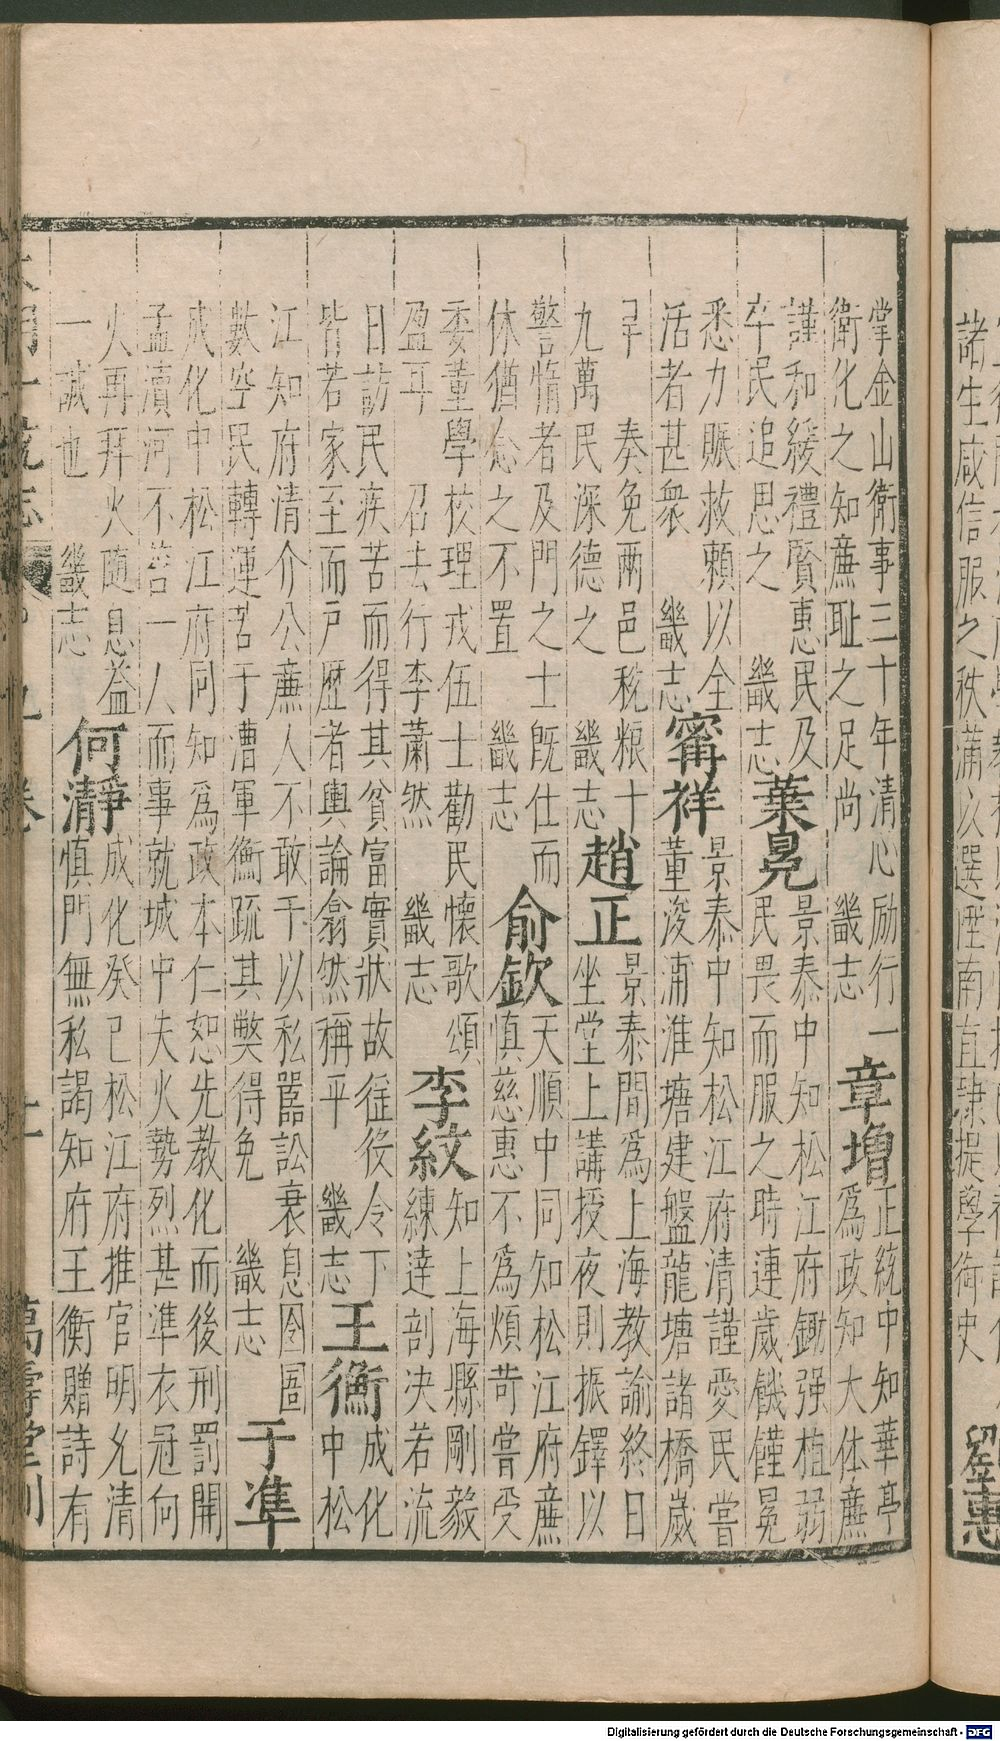 掌金山衛事三十年清心励行一
衛化之知廉耻之足尚 畿志
章増
正統中知華亭
爲政知大体廉
謹和緩禮賢惠民及
卒民追思之 畿志
葉晃
景泰中知松江府鋤强植弱
民畏而服之時連歲饑饉晃
悉力賑救頼以全
活者甚衆 畿志
甯祥
景泰中知松江府清謹愛民嘗
董浚浦淮塘建盤龍塘諸橋歲
旱 奏免兩邑稅粮十
九萬民深德之 畿志
趙正
景泰間爲上海教諭終日
坐堂上講授夜則振鐸以
警惰者及門之士既仕而
休猶念之不置 畿志
俞欽
天順中同知松江府廉
慎慈惠不爲煩苛嘗受
委董學校理戎伍士勸民懷歌頌
盈耳 召去行李蕭然 畿志
李紋
知上海縣剛毅
練達剖决若流
日訪民疾苦而得其貧富實狀故徃役令下
皆若家至而戸歴者輿論翕然稱平 畿志
王衡
成化
中松
江知府清介公廉人不敢干以私嚚訟衰息囹圄
數空民轉運苦于漕軍衡疏其獘得免 畿志
于準
成化中 松江府同知爲政本仁恕先教化而後刑罰開
孟瀆河不笞一人而事就城中失火勢烈甚準衣冠向
火再拜火随息葢
一誠也 畿志
何瀞
成化癸巳松江府推官明允清
慎門無私謁知府王衡贈詩有
萬壽堂刊
諸生咸信服之秩滿以選陞南直隷提學御史
劉惠
Digitalisierung gefördert durch die Deutsche Forschungsgemeinschaft - DFG